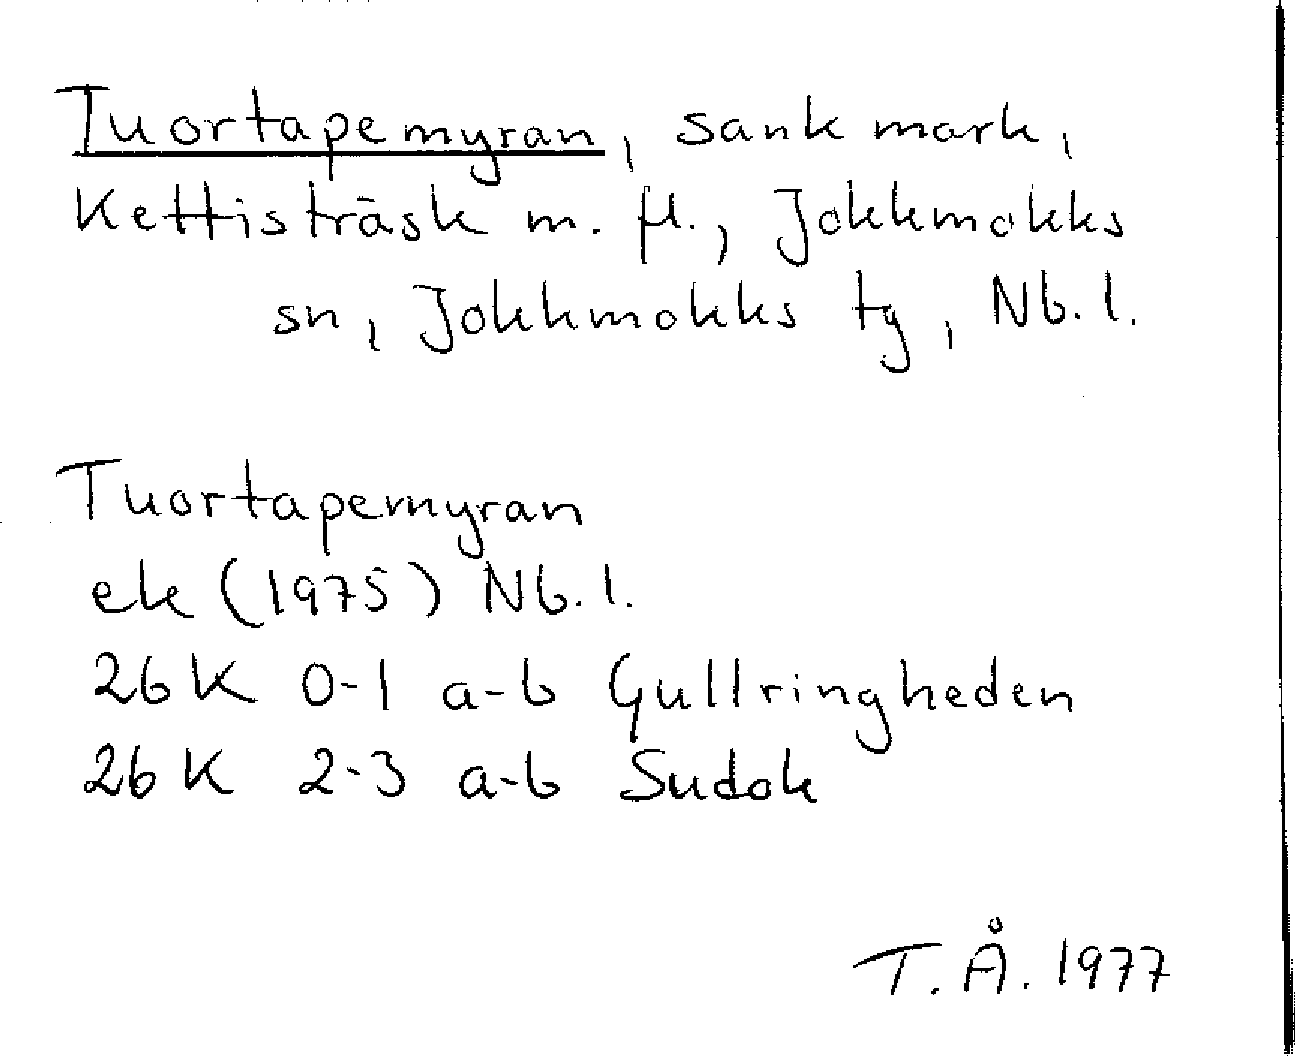 Tuortapemyran, sank mark,
Kettisträsk m. fl., Jokkmokks
sn, Jokkmokks tg, Nb. l.
Tuortapemyran
ek (1975) Nb. l.
26 K 0-1 a-b Gullringheden
26 K 2-3 a-b Sudok
T. Å. 1977